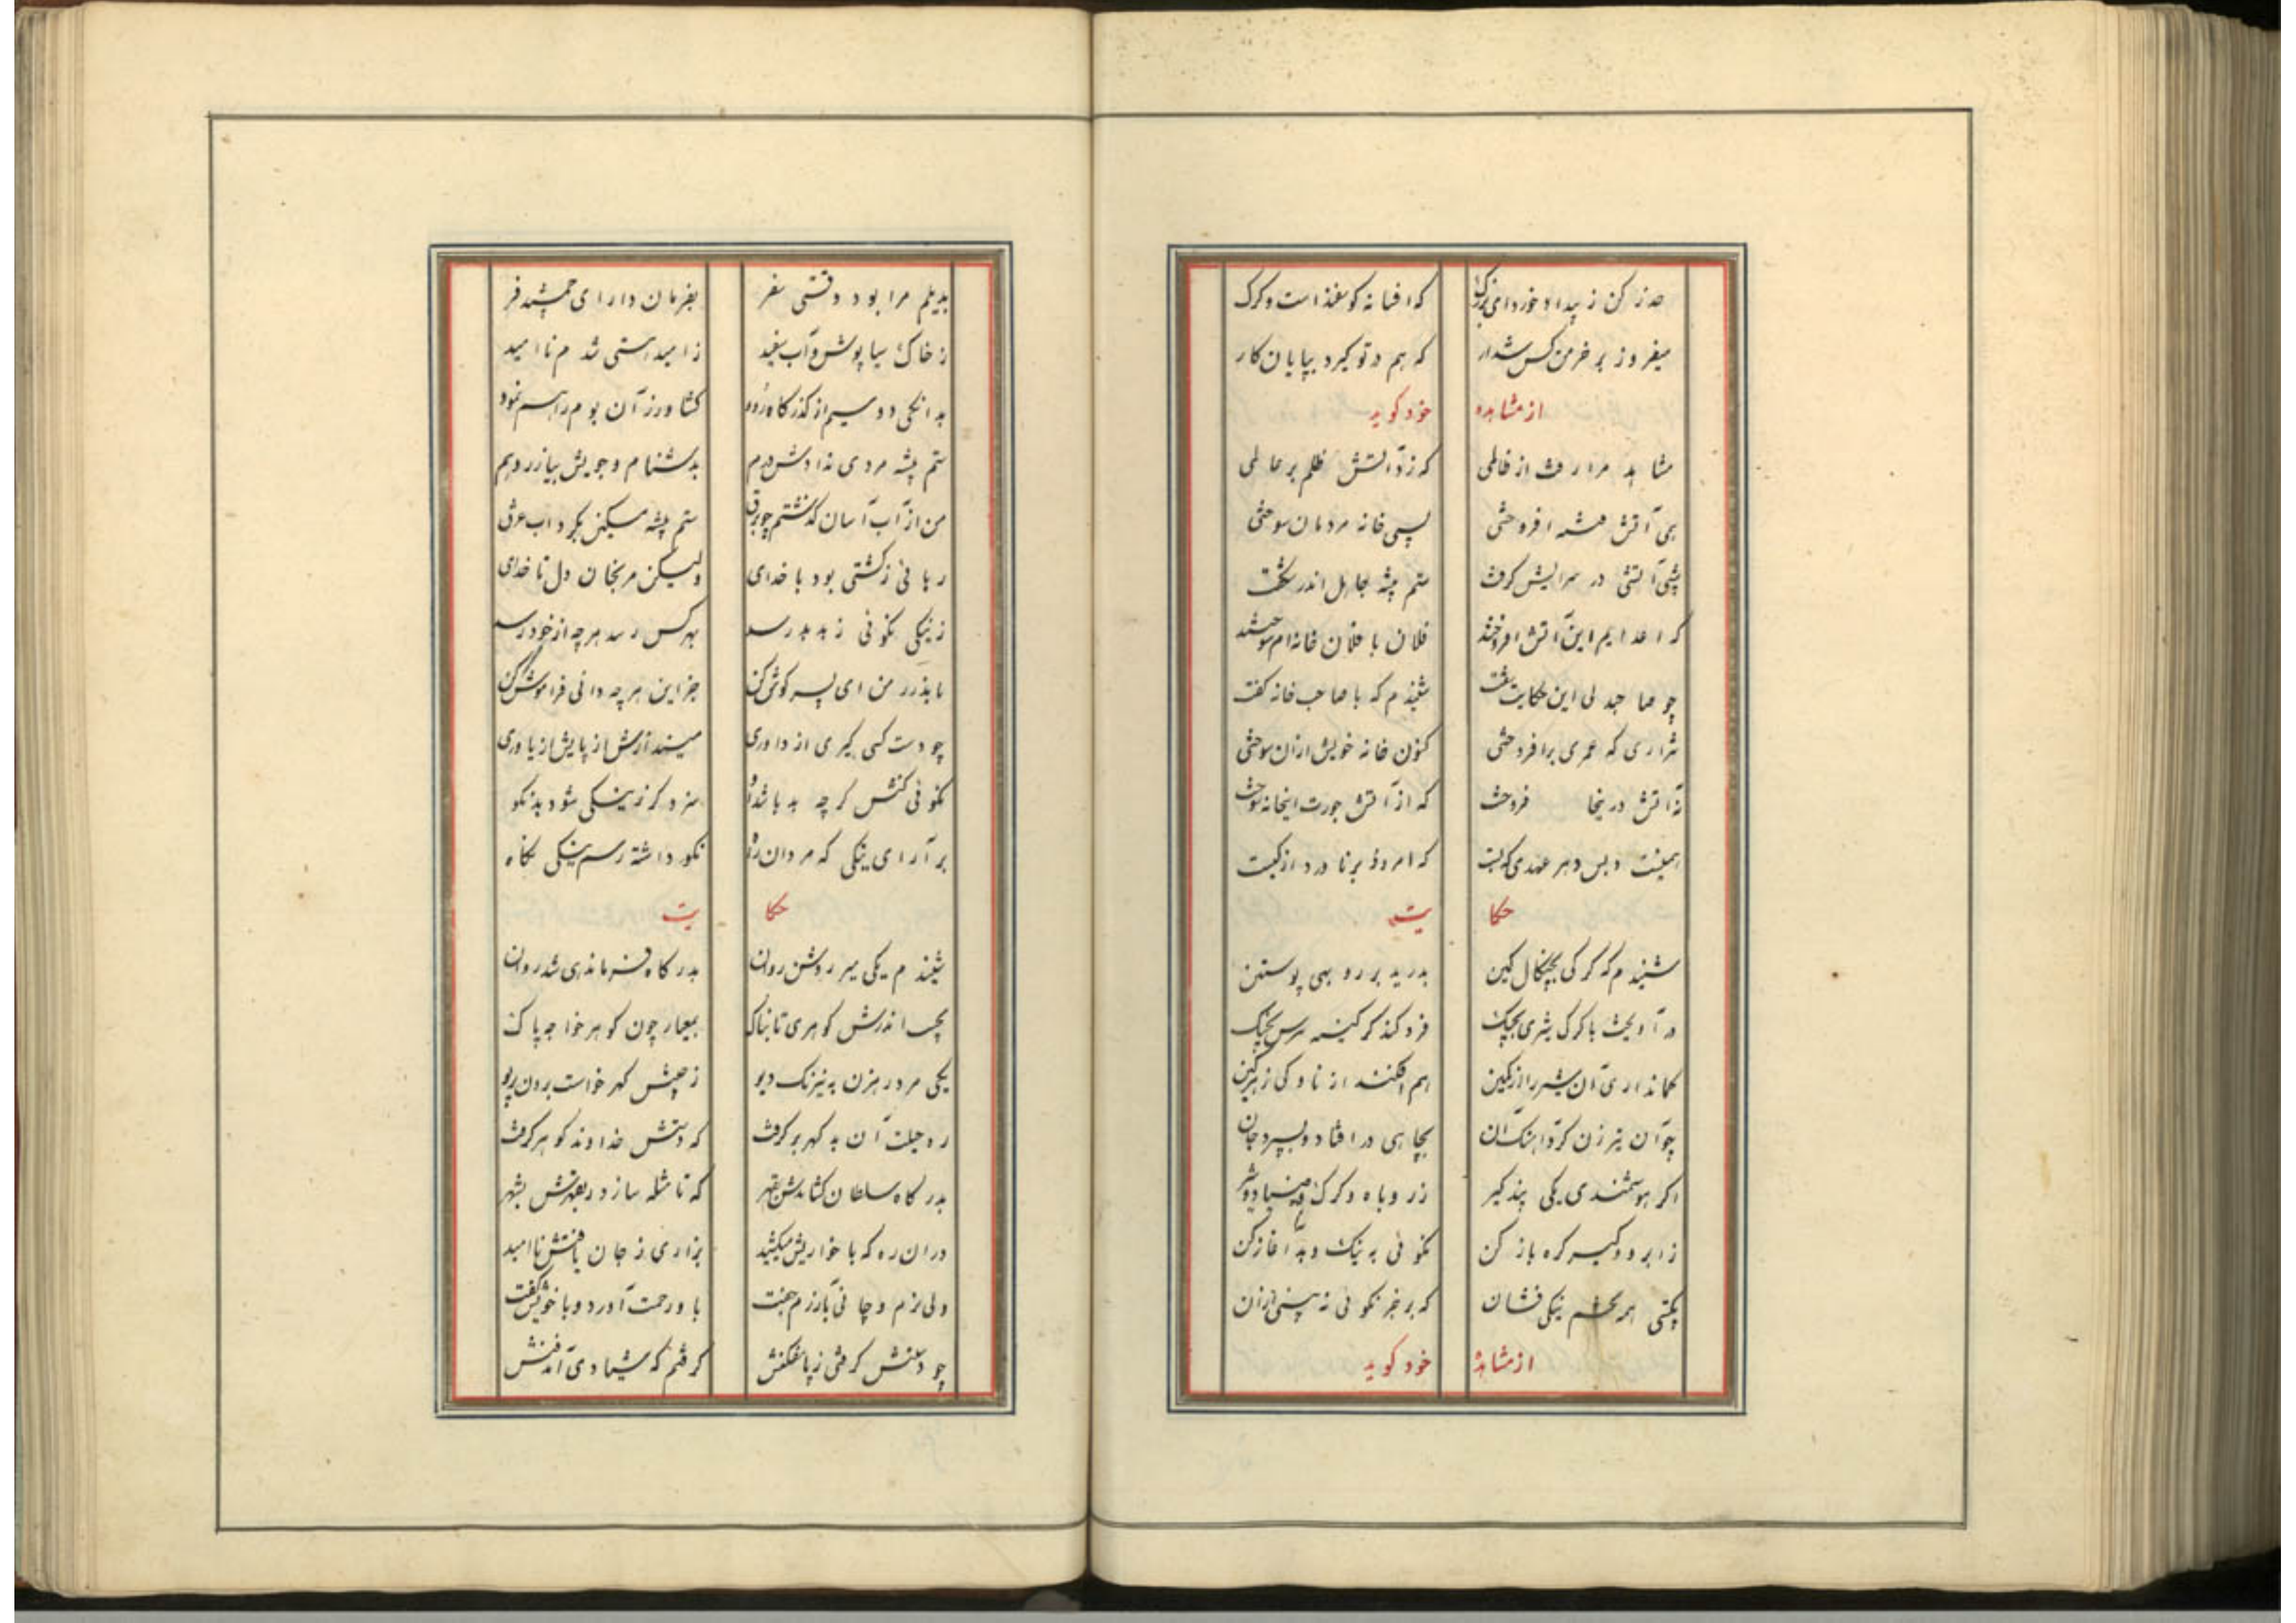 حذر کن ز بیداد خورد ای بزرگ که افسانه گوسفند است و کرک
میفروز بر خرمن کس شرار که هم در تو گیرد بپایان کار
از مشاهده خود کوید
مشاهد مرا رفت از ظالمی که زد آتش ظلم بر عالمی
همی آتش فتنه افروختی بسی خانه مردمان سوختی
شبی آتشی در سرایش گرفت ستم پیشه جاهل اندر شگفت
که اعدایم این آتش افروختند فلان با فلان خانه ام سوختند
چو صاحبدلی این حکایت شنفت شنیدم که با صاحب خانه گفت
شراری که عمری برافروختی کنون خانه خویش ازان سوختی
نه آتش درینجا فروخت که از آتش جورت اینخانه سوخت
همینست و بس دهر عهدی که بست که امروز برنا ورد از
حکایت
شنیدم که کرکی بچنگال کین بدرید بر روبهی پوستین
در آویخت با کرک شیری بجنگ فرو کند کرکینه سرس بچنگ
کمانداری آن شیر را از کمین هم افکند از ناوکی بر زمین
چو آن تیرزن کرد آهنگ آن بچاهی در افتاد و بسپرد جان
اکر هوشمندی یکی پند کیر ز روباه و کرک و ز صیاد و شیر
ز ابرو و کیسه کره باز کن نکوئی به نیک و بد آغاز کن
بکیتی همی تخم نیکی فشان که بر جز نکوئی نه بینی ازان
از مشاهده خود کوید
بدیلم مرا بود وقتی سفر بفرمان دارای جمشید فر
ز خاک سیا پوش و آب سفید ز امید هستی شدم ناامید
بدانجا دو سیم از گذرگاه رود کشاورز آن بوم را رسم بود
ستم پیشه مردی ندادش درم بدشنام و چوبش بیازرد هم
من از آب آسان گذشتم چو برق ستم پیشه مسکین بگرداب غرق
رهائی ز کشتی بود با خدای ولیکن مرنجان دل ناخدای
ز نیکی نکوئی ز بد بد رسد بهر کس رسد هر چه از خود رسد
باندرز من ای پسر گوش کن جز این هر چه دانی فراموش کن
چو دست کسی گیری از داوری میندازش از پایش از یاوری
نکوئی کنش گر چه بد باشد او سزد گر ز نیکی شود بد نکو
بر آرای نیکی که مردان راه نکو داشته رسم نیکی نگاه
حکایت
شنیدم یکی میر روشن روان بدرگاه فرماندهی شد روان
بجیب اندرش گوهری تابناک بمعیار چون گوهر خواجه پاک
یکی مرد رهزن به نیرنگ دیو ز جیبش گهر خواست بردن بریو
ره حیلت آن بد گهر بر گرفت که دستش خداوند گوهر گرفت
بدرگاه سلطان کشاندش بقهر که تا مثله سازد بقهرش بشهر
دران ره که با خواریش میکشید بزاری ز جان یافتش ناامید
دلی نرم و جانی بآرزم جفت باو رحمت آورد و با خویش گفت
چو دستش گرفتی ز پا مفکنش گرفتم که شیادی آمد فنش